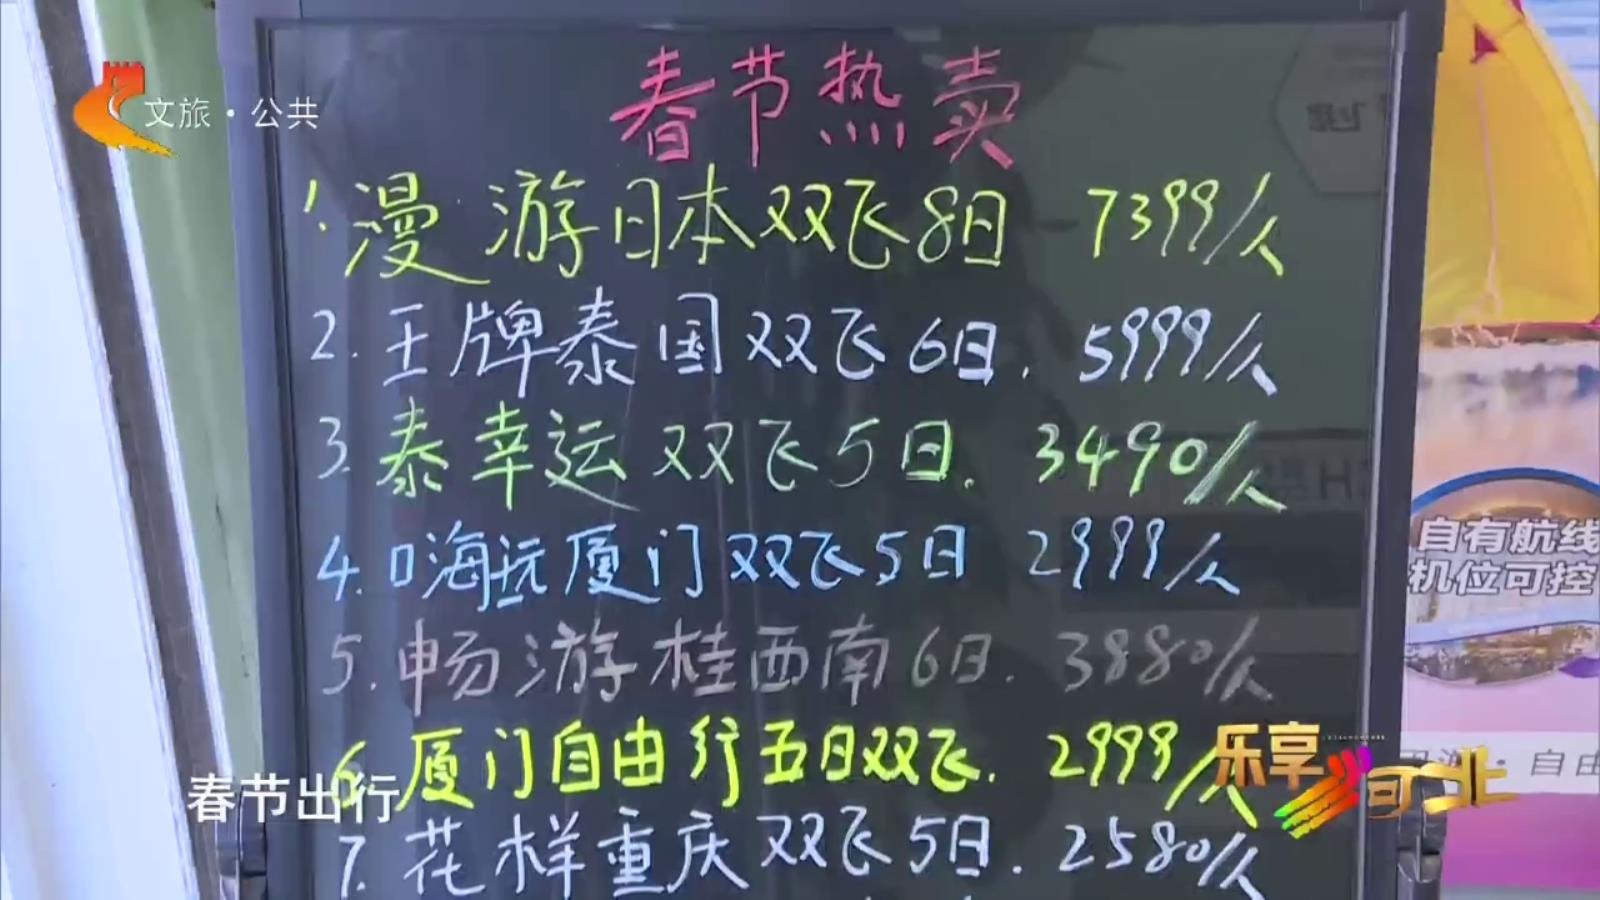 文旅·公共
春节热卖
1. 漫游日本双飞8日 7399/人
2. 王牌泰国双飞6日. 5999/人
3. 泰幸运双飞5日. 3490/人
4. 口嗨玩厦门双飞5日 2999/人
5. 畅游桂西南6日. 3880/人
6. 厦门自由行五日双飞. 2999/人
7. 花样重庆双飞5日. 2580/人
自有航线
机位可控
自由
春节出行
乐享河北